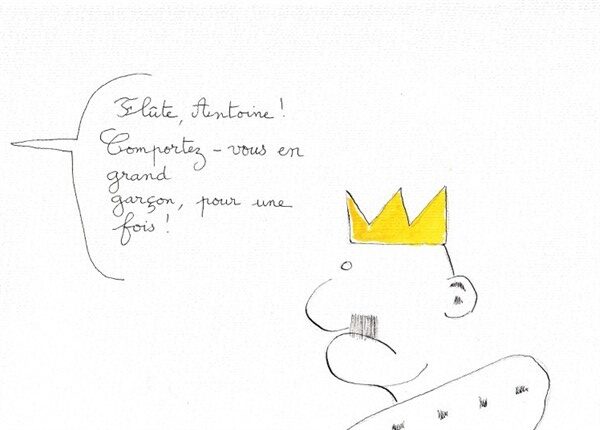 Flûte, Antoine !
Comportez-vous en
grand
garçon, pour une
fois !